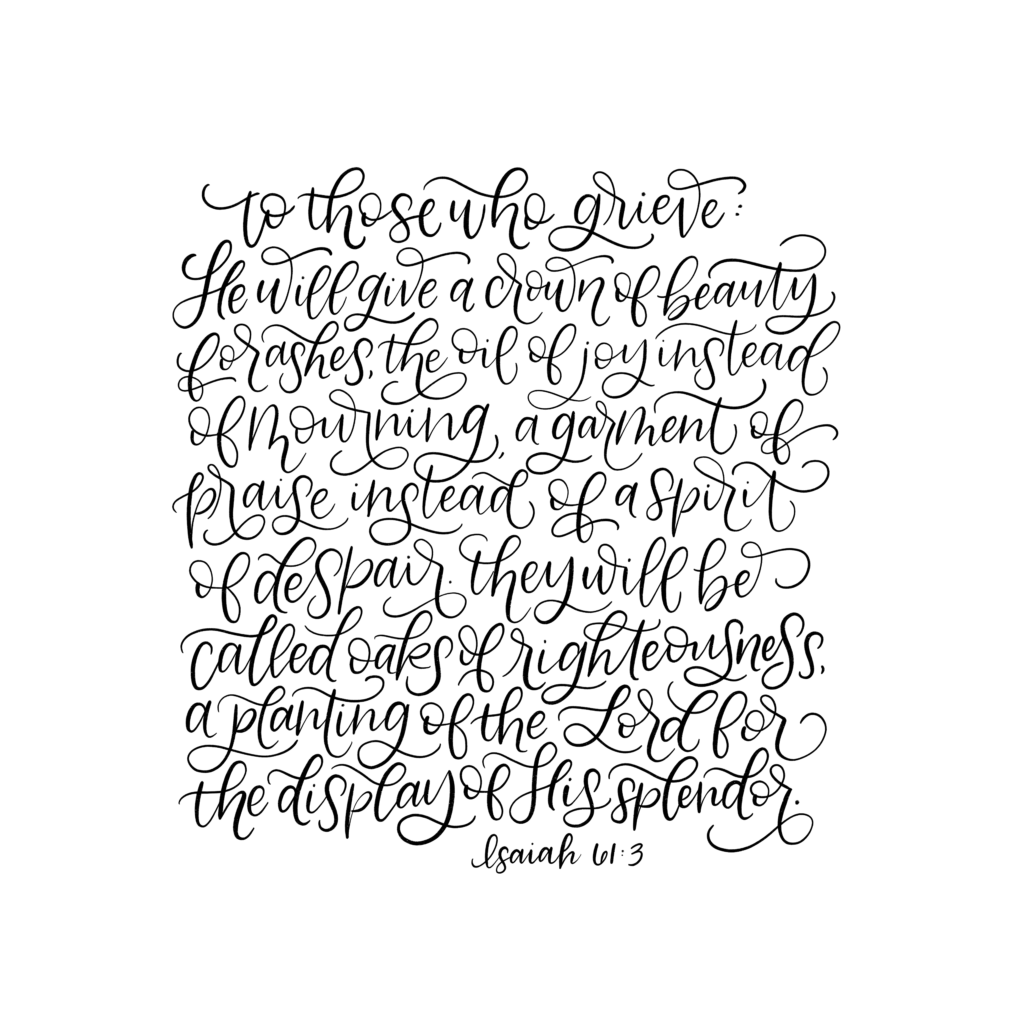 to those who grieve:
He will give a crown of beauty
for ashes, the oil of joy instead
of mourning, a garment of
praise instead of a spirit
of despair. they will be
called oaks of righteousness,
a planting of the Lord for
the display of His splendor.
Isaiah 61:3